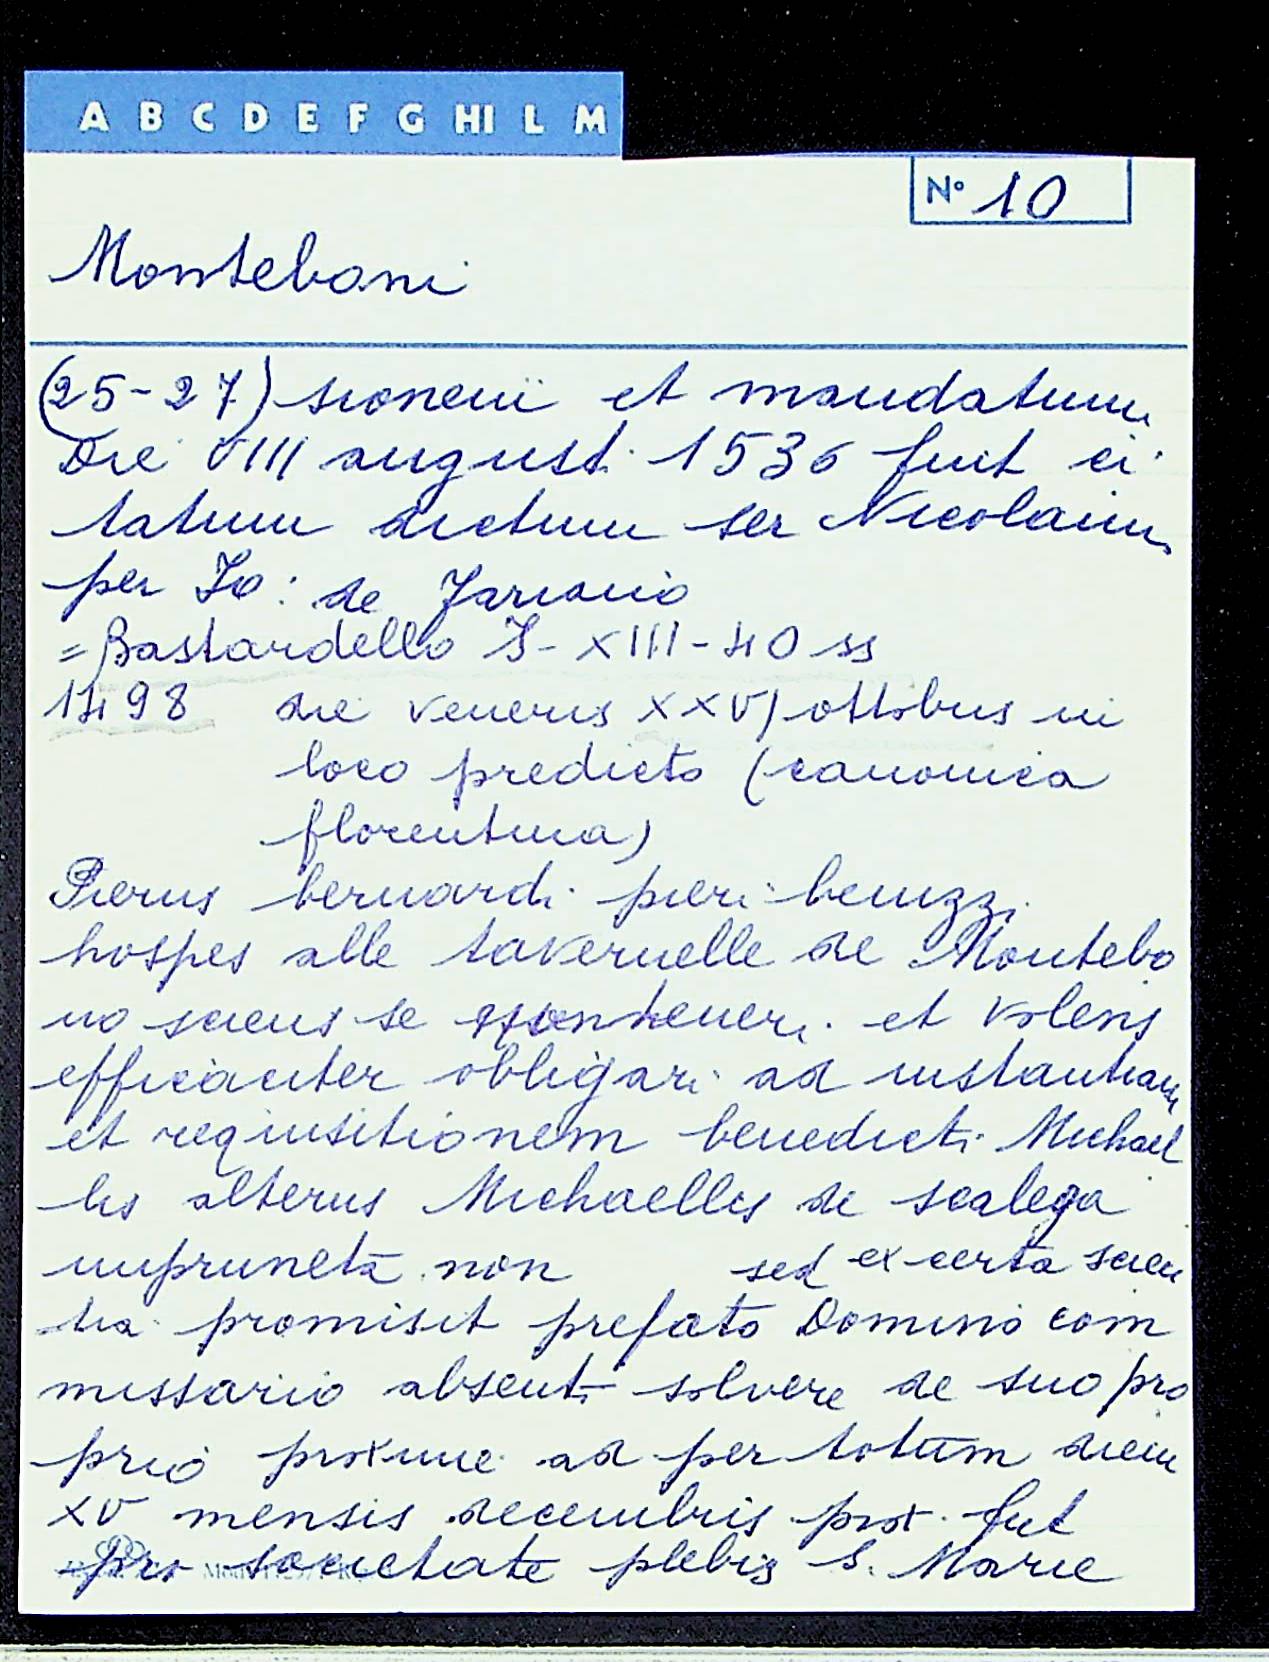 A B C D E F G HI L M
N° 10
Monteboni
(25-27) sionem et mandatum
Die VIII august. 1536 fuit ci
tatum dictum ser Nicolaum
per Io: de
= Bastardello I - XIII - 40 ss
1498 die veneris XXVI ottobris in
loco predicto (canonica
florentina)
Pierus bernardi pieri benizzi
hospes alle tavernelle de Montebo
no sciens se non teneri et volens
efficaciter obligari ad instantiam
et requisitionem benedicti Michael
lis alterius Michaellis de
impruneta non sed ex certa scien
tia promisit prefato Domino com
missario absenti solvere de suo pro
prio proxime ad per totum diem
XV mensis decembris prox. fut
pro societate plebis S. Marie